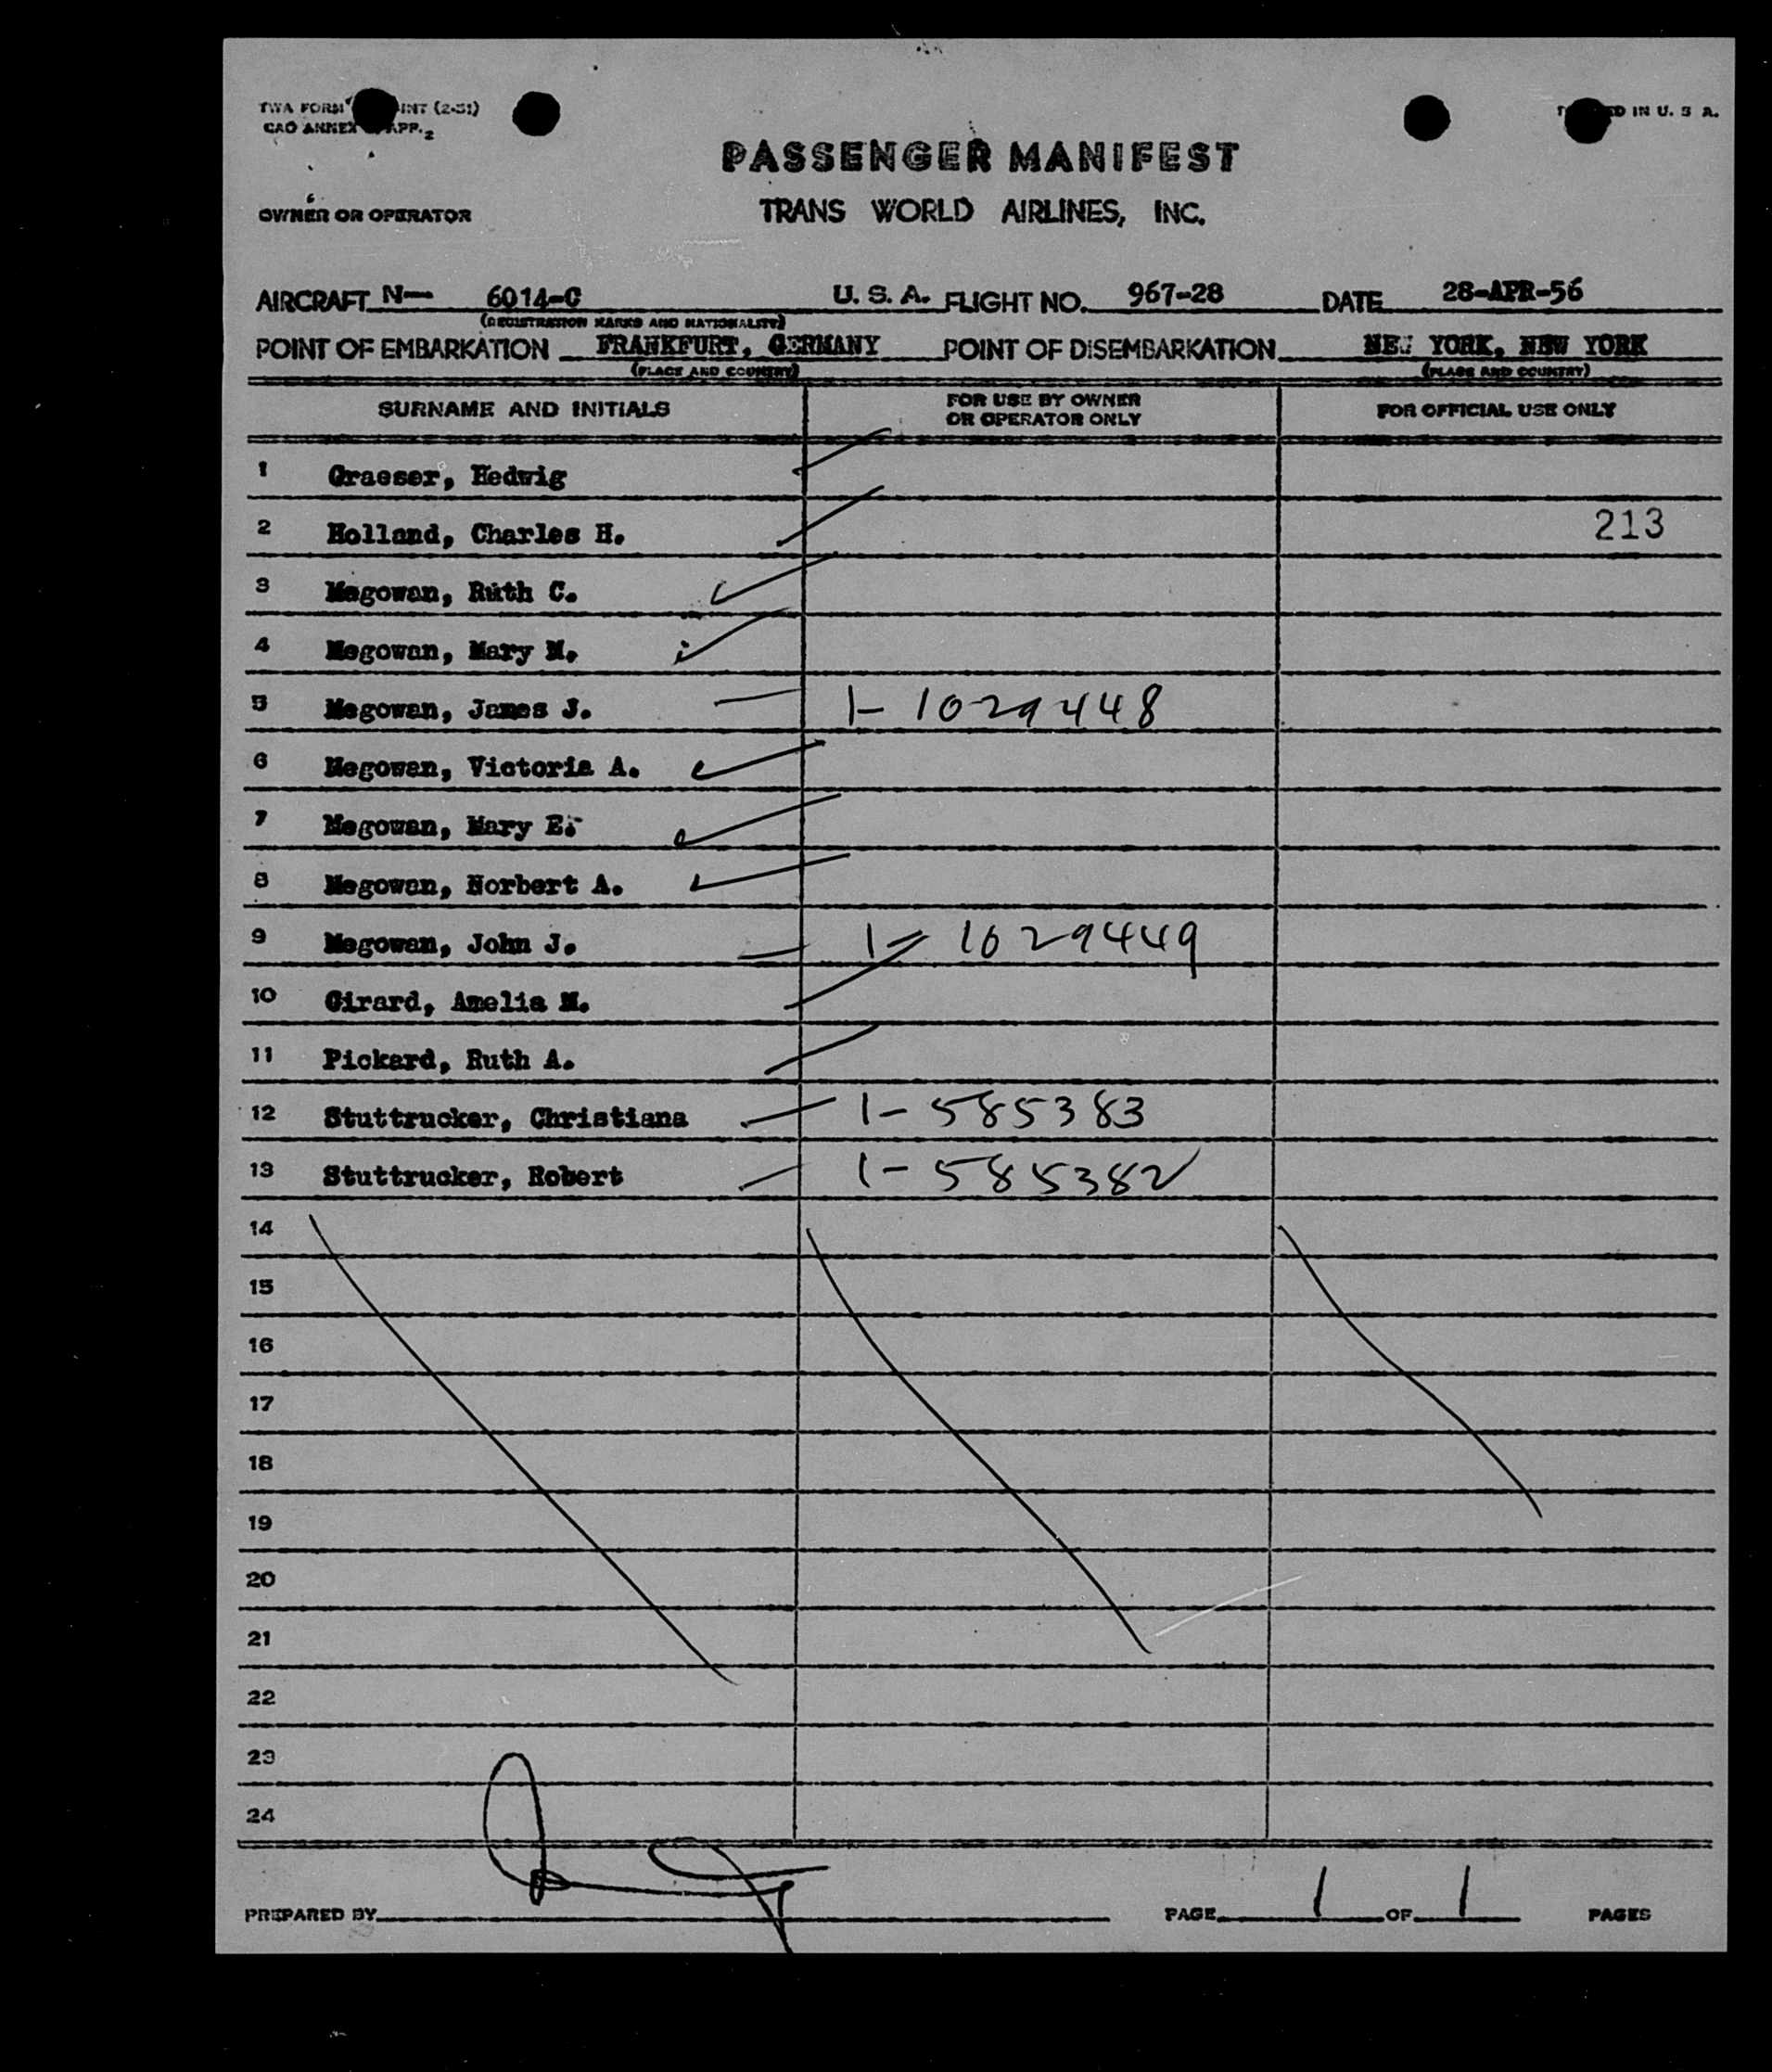 TWA FORM INT (2-51)
CAO ANNEX APP. 2
IN U. S. A.
PASSENGER MANIFEST
OWNER OR OPERATOR TRANS WORLD AIRLINES, INC.
AIRCRAFT N— 6014-C U. S. A. FLIGHT NO. 967-28 DATE 28-APR-56
(REGISTRATION MARKS AND NATIONALITY)
POINT OF EMBARKATION FRANKFURT, GERMANY POINT OF DISEMBARKATION NEW YORK, NEW YORK
(PLACE AND COUNTRY) (PLACE AND COUNTRY)
SURNAME AND INITIALS FOR USE BY OWNER OR OPERATOR ONLY FOR OFFICIAL USE ONLY
1 Graeser, Hedwig
2 Holland, Charles H. 213
3 Megowan, Ruth C.
4 Megowan, Mary M.
5 Megowan, James J. 1- 1029448
6 Megowan, Victoria A.
7 Megowan, Mary E.
8 Megowan, Norbert A.
9 Megowan, John J. 1- 1029449
10 Girard, Amelia M.
11 Pickard, Ruth A.
12 Stuttrucker, Christiana 1- 585383
13 Stuttrucker, Robert 1- 585382
14
15
16
17
18
19
20
21
22
23
24
PREPARED BY PAGE 1 OF 1 PAGES